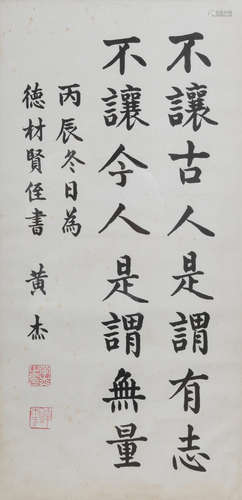 不讓古人是謂有志
不讓今人是謂無量
丙辰冬日為
德材賢侄書 黃杰